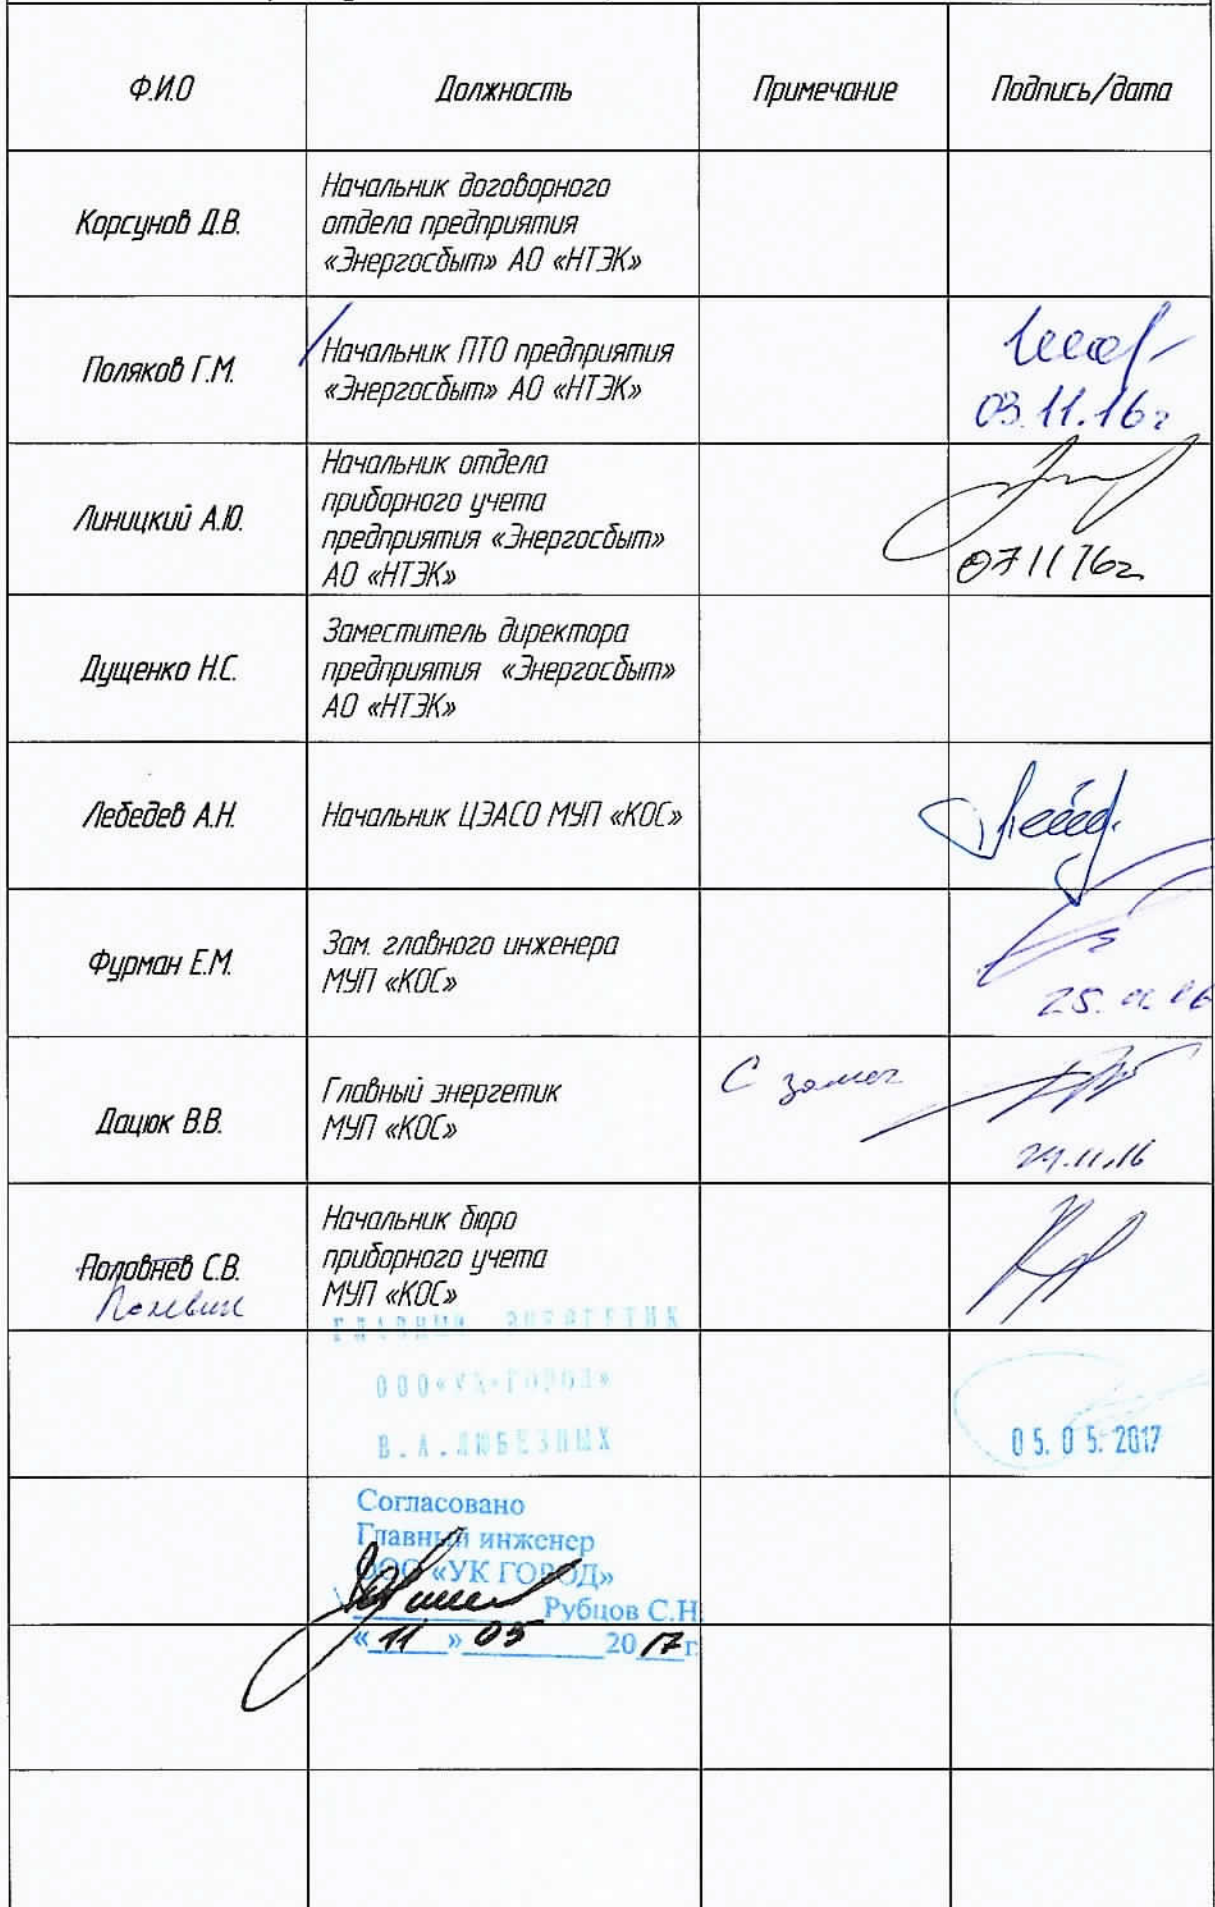 Ф.И.О
Должность
Примечание
Подпись/дата
Корсунов Д.В.
Начальник договорного
отдела предприятия
«Энергосбыт» АО «НТЭК»
Поляков Г.М.
Начальник ПТО предприятия
«Энергосбыт» АО «НТЭК»
03.11.16г
Линицкий А.Ю.
Начальник отдела
приборного учета
предприятия «Энергосбыт»
АО «НТЭК»
07 11 16г
Дущенко Н.С.
Заместитель директора
предприятия «Энергосбыт»
АО «НТЭК»
Лебедев А.Н.
Начальник ЦЭАСО МУП «КОС»
Фурман Е.М.
Зам. главного инженера
МУП «КОС»
25.
Дацюк В.В.
Главный энергетик
МУП «КОС»
С замеч
24.11.16
Половнев С.В.
Начальник бюро
приборного учета
МУП «КОС»
ГЛАВНЫЙ ЭНЕРГЕТИК
ООО«УК«ГОРОД»
В.А.ЛЮБЕЗНЫХ
05.05.2017
Согласовано
Главный инженер
ООО «УК ГОРОД»
Рубцов С.Н.
« 11 » 05 2017г.